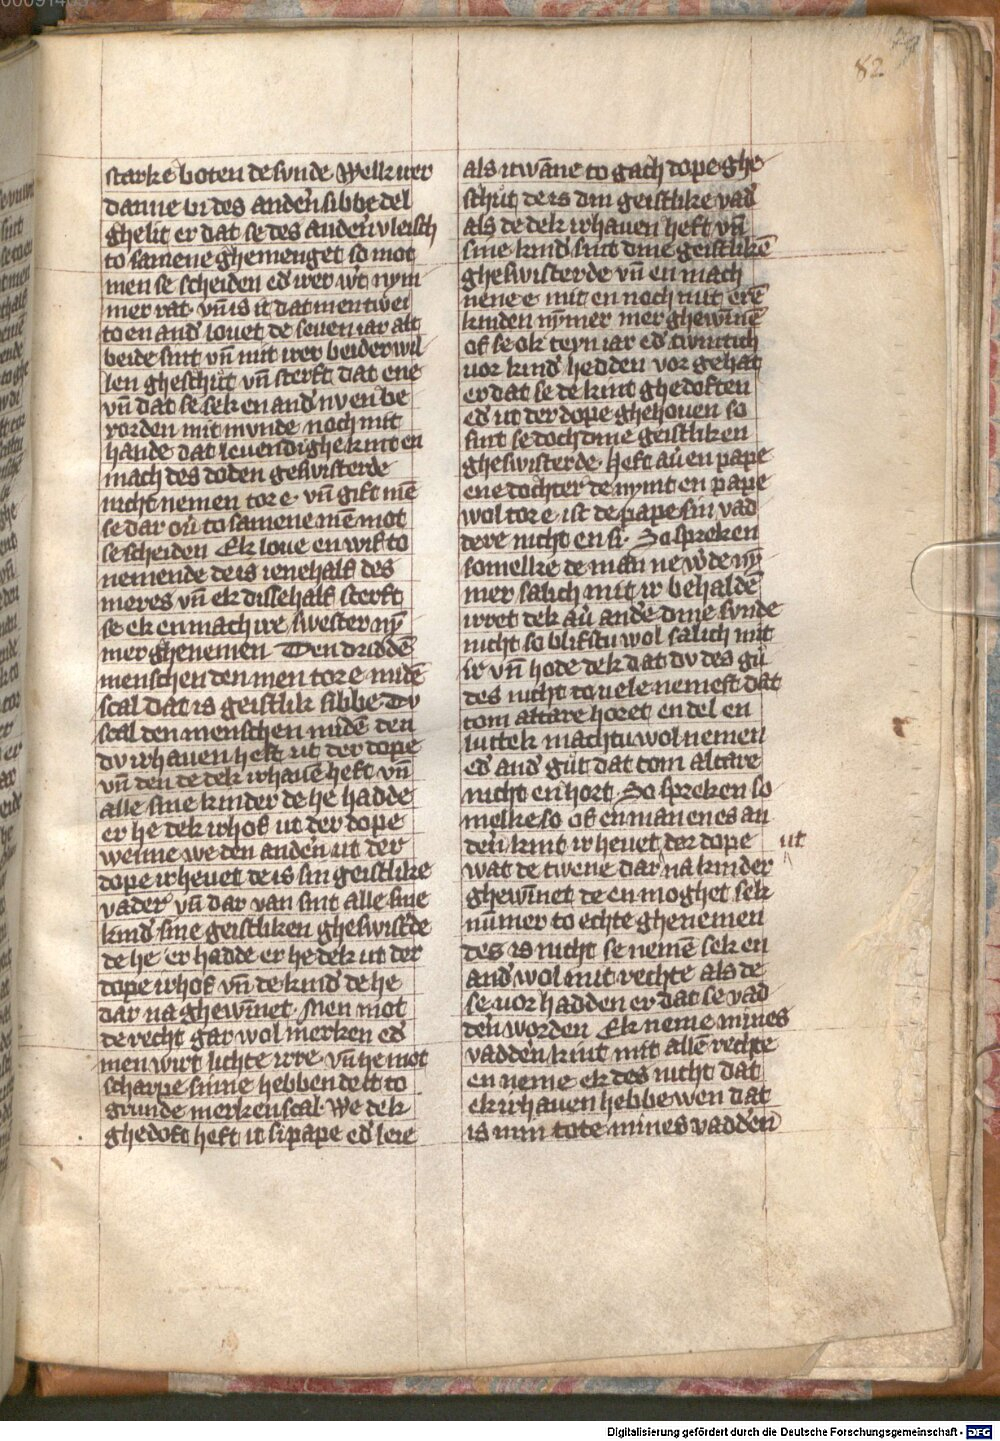 82
starke boten de sunde Welk irer
danne bi des andern sibbe del
ghelit er dat se des andern vleisch
to samene ghemenget so mot
men se scheiden eder irer wirt nym
mer rat · vn̄ is it dat men twei
to en ander louet de seuen iar alt
beide sint vn̄ mit irer beider wil
len gheschiit vn̄ sterft dat ene
vn̄ dat se sek en ander nv en be
rorden mit munde noch mit
hande dat leuendighe kint en
mach des doden geswisterde
nicht nemen tor e · vn̄ gift mē
se dar ouer to samene mē mot
se scheiden Ek loue en wif to
nemende de is ienehalf des
meres vn̄ ek dissehalf sterft
se ek en mach ire swester nȳ
mer ghenemen Den driddē
menschen den men tor e midē
scal dat is geistlik sibbe Du
scal den menschen midē den
du irhauen hest ut der dope
vn̄ den de dek irhauē heft vn̄
alle sine kinder de he hadde
er he dek irhof ut der dope
wenne we den andern ut der
dope irheuet de is sin geistlike
vader vn̄ dar van sint alle sine
kinder sine geistliken gheswisterde
de he er hadde er he dek ut der
dope irhof vn̄ de kinder de he
dar na ghewinnet · Men mot
de recht gar wol merken eder
men wirt lichte irre vn̄ he mot
scharpe sinne hebben de it to
grunde merken scal · We dek
ghedoft heft it si pape eder leie
als it wāne to gach dope ghe
schiit de is din geistlike vader
als de dek irhauen heft vn̄
sine kinder sint dine geistlikē
gheswisterde vn̄ en mach
nene e mit en noch mit erē
kinden nymer mer ghewinnē
of se ok teyn iar eder twintich
uor kinder hedden vor gehat
er dat se de kint ghedoften
eder ut der dope ghehouen so
sint se doch dine geistliken
gheswisterde · Heft auer en pape
ene dochter de nymt en pape
wol tor e ist de pape sin vad
dere nicht en si · So spreken
somelke de man ne werde nȳ
mer salich mit ir behaldē
irret dek auer ander dine sunde
nicht so blifstu wol salich mit
ir vn̄ hode dek dat du des gu
des nicht to uele nemest dat
tom altare horet en del en
luttek machtu wol nemen
eder ander gut dat tom altare
nicht en hort · So spreken so
melke so of en man enes an
dern kint irheuet der dope ut
wat de twene dar na kinder
ghewinnet de en moghet sek
nūmer to echte ghenemen
des is nicht se nemē sek en
ander wol mit rechte als de
se uor hadden er dat se vad
dern worden Ek neme mines
vaddern kint mit allē rechte
en neme ek des nicht dat
ek irhauen hebbe wen dat
is min tote mines vaddern
Digitalisierung gefördert durch die Deutsche Forschungsgemeinschaft - DFG